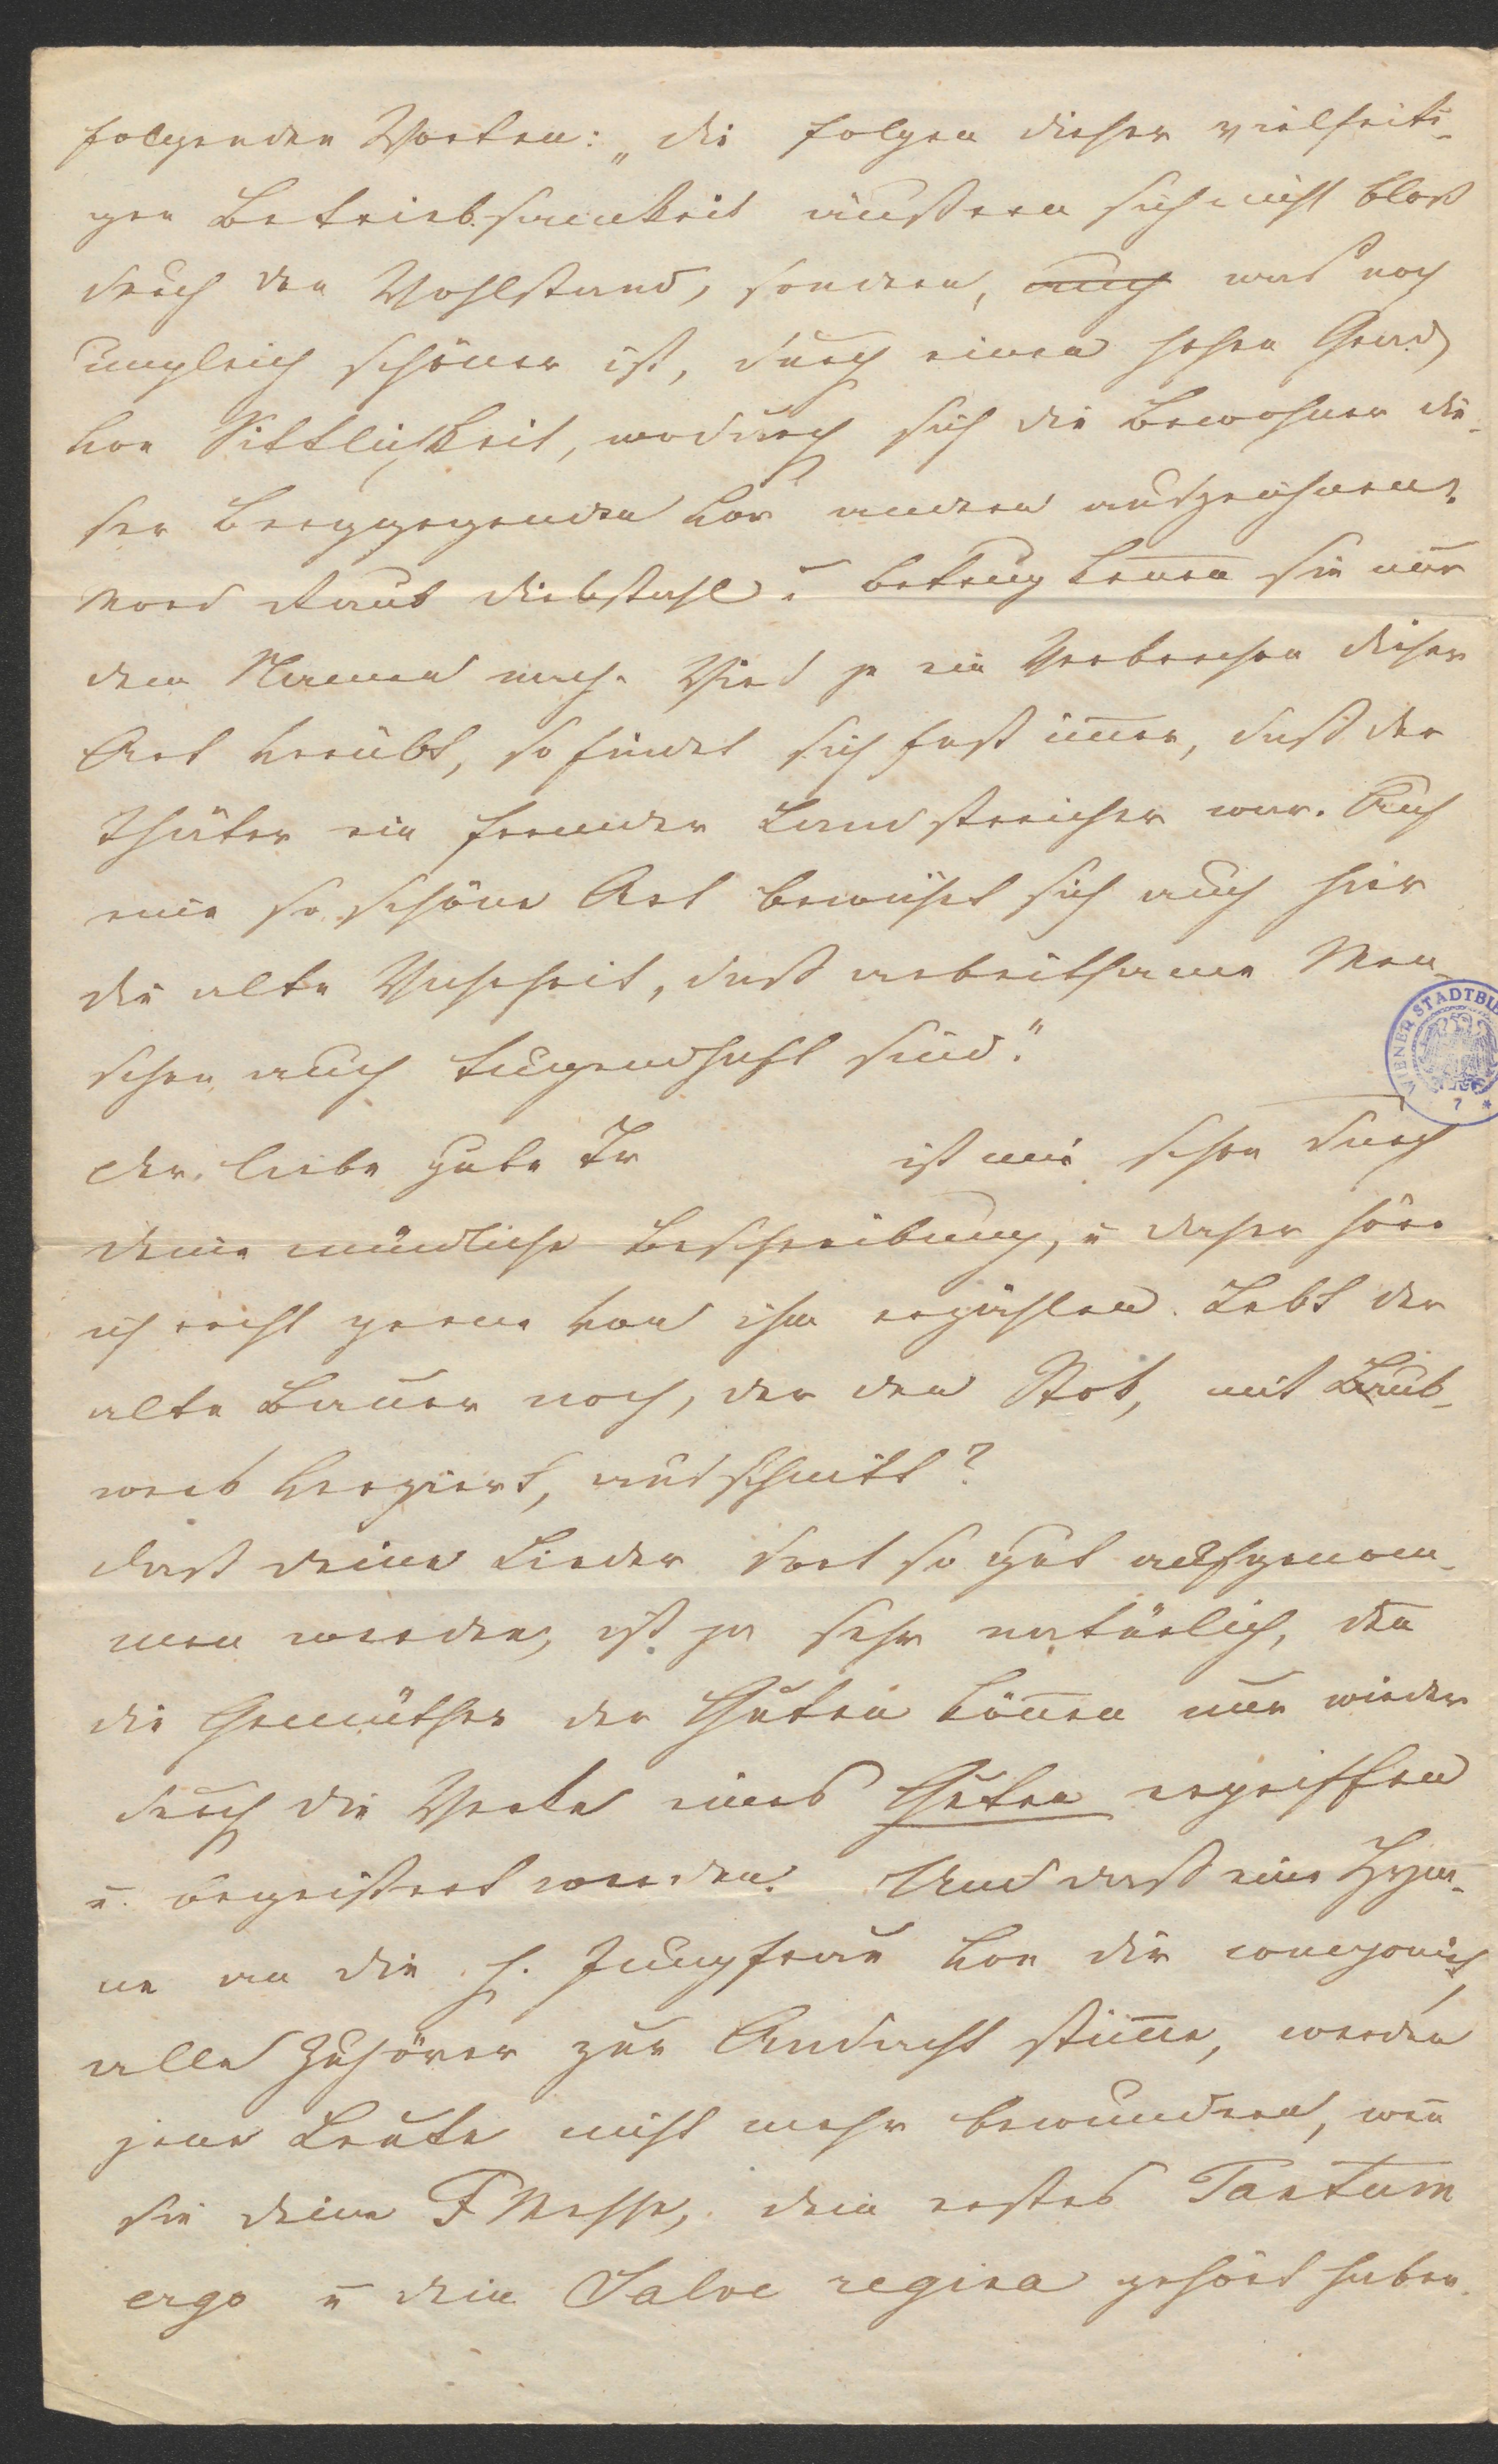 folgenden Worten: „die Folgen dieser vielseiti-
gen Betriebsamkeit äußern sich nicht bloß
durch den Wohlstand, sondern, auch was noch
ungleich schöner ist, durch einen hohen Grad
von Sittlichkeit, wodurch sich die Bewohner die-
ser Berggegenden vor andern auszeichnen.
Mord Raub Diebstahl u Betrug keñen sie nur
dem Namen nach. Wird je ein Verbrechen dieser
Art verübt, so findet sich fast im̃er, daß der
Thäter ein fremder Landstreicher war. Auf
eine so schöne Art bewährt sich auch hier
die alte Wahrheit, daß arbeitsame Men-
schen auch tugendhaft sind."
WIENER STADTBI
7 *
Der liebe gute Tr ist mir schon durch
deine mündliche Beschreibung, u daher höre
ich recht gerne von ihm erzählen. Lebt der
alte Bauer noch, der den Stock, mit Laub-
werk verziert, ausschnitt?
Daß deine Lieder dort so gut aufgenom-
men werden, ist ja sehr natürlich, deñ
die Gemüther der Guten köñen nur wieder
durch die Werke eines Guten ergriffen
u. begeistert werden. Und daß eine Hym-
ne an die h. Jungfrau von dir componirt,
alle Zuhörer zur Andacht stim̃e, werden
jene Leute nicht mehr bewundern, weñ
sie deine F Messe, dein erstes Tantum
ergo u dein Salve regina gehört haben.